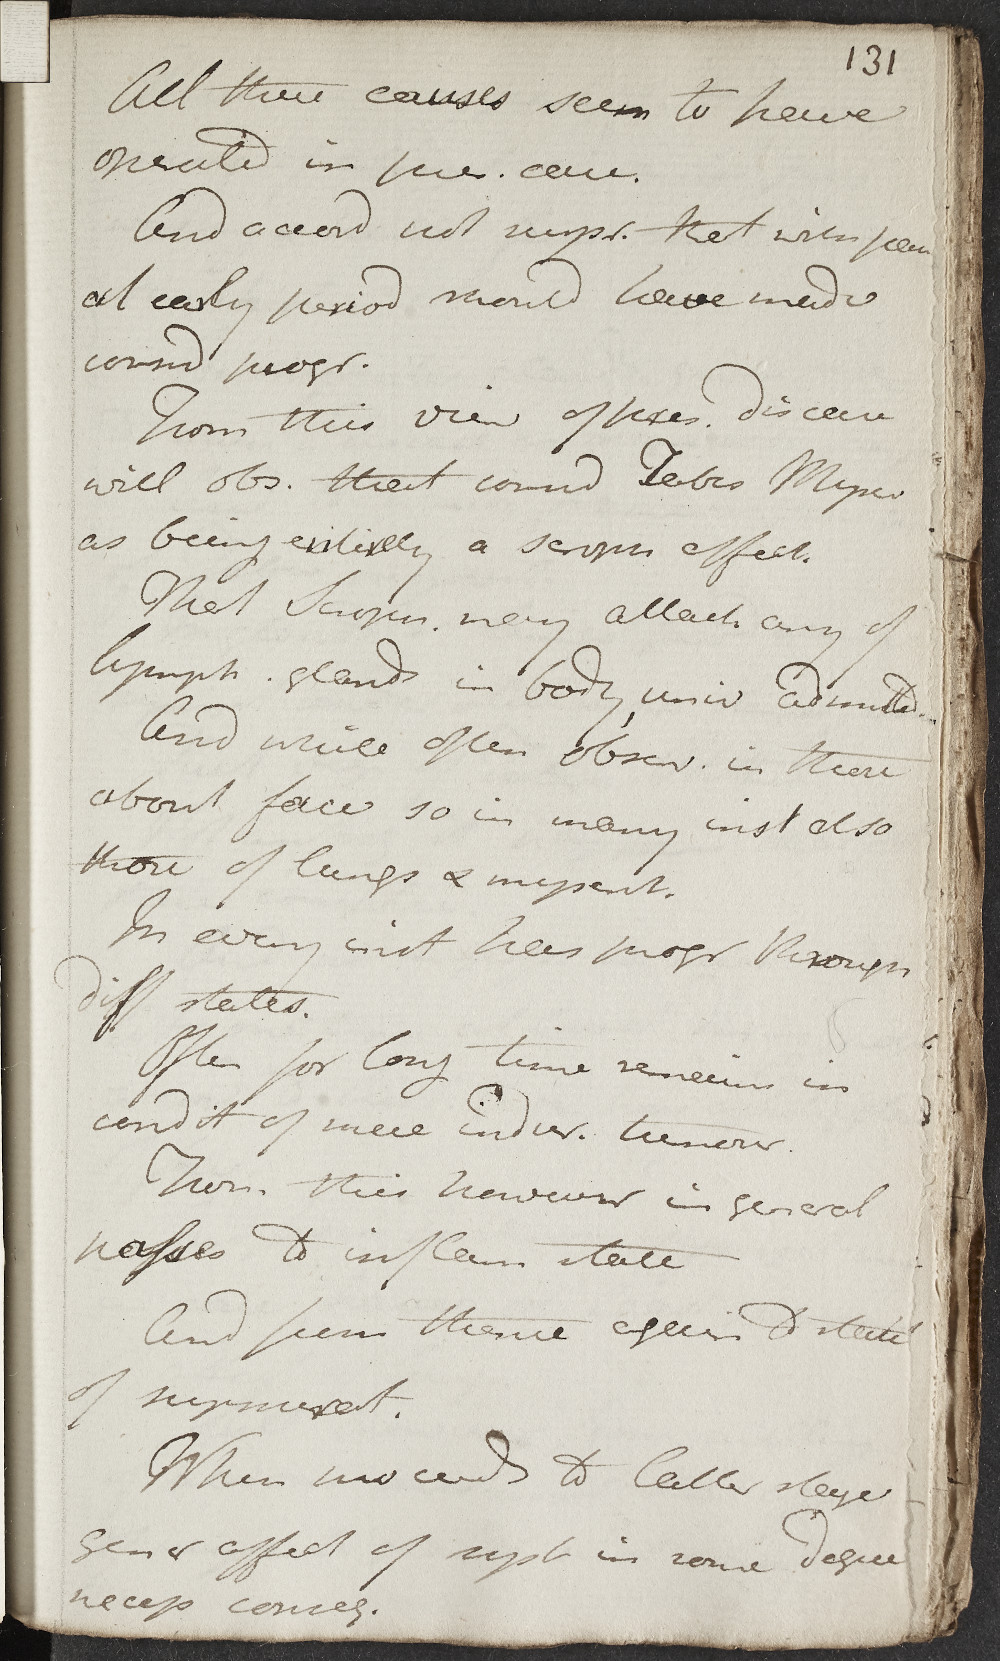 131
All these causes seem to have
operated in pres. case.
And accord not surpr. that when seen
at early period should have made
consid progr.
From this view of pres. disease
will obs. that consid Tabes Mesen
as being entirely a scroph affect.
That Scroph. may attack any of
lymph. glands in body, univ admitted
And while often observ. in those
about face so in many inst also
those of lungs & mesent.
In every inst has progr through
diff states.
Often for long time remains in
condit of mere indur. tumour.
From this however in general
passes to inflam state
And from thence again to state
of suppurat.
When proceeds to latter stage
gener affect of syst in some degree
necess conseq.